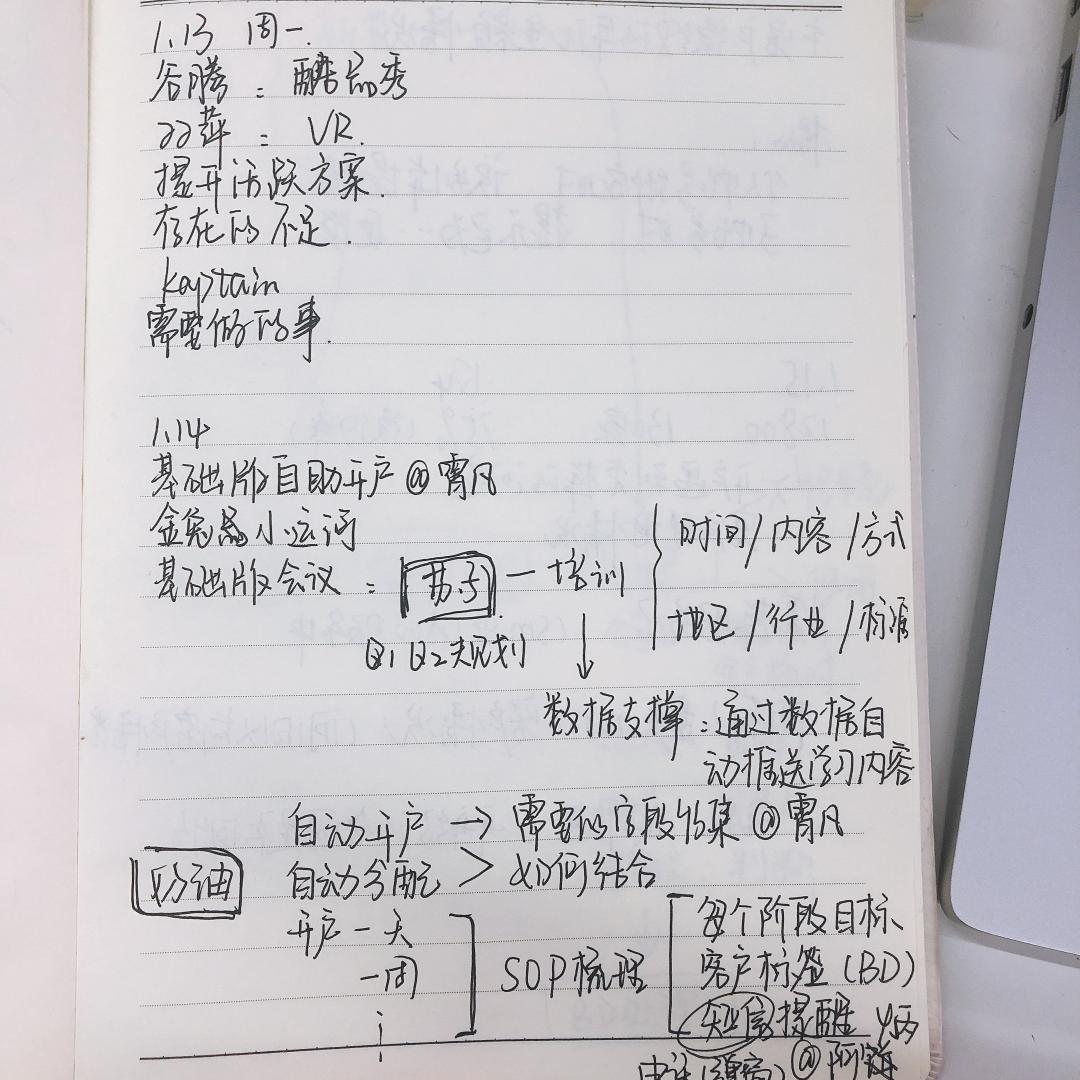 1.13 周一.
谷腾: 酷品秀
双萍: VR.
提升活跃方案.
存在的不足.
kaptain
需要做的事.
1.14
基础版自助开户@霄凡
金兔 小运河
基础版会议: 苏子 — 培训
时间/内容/方式
地区/行业/标准
Q1 Q2规划 ↓
数据支撑:通过数据自
动推送学习内容
自动开户 → 需要的字段收集@霄凡
自动分配 > 如何结合
奶油
开户一天
一周
SOP梳理
每个阶段目标
客户标签(BD)
短信提醒
@阿